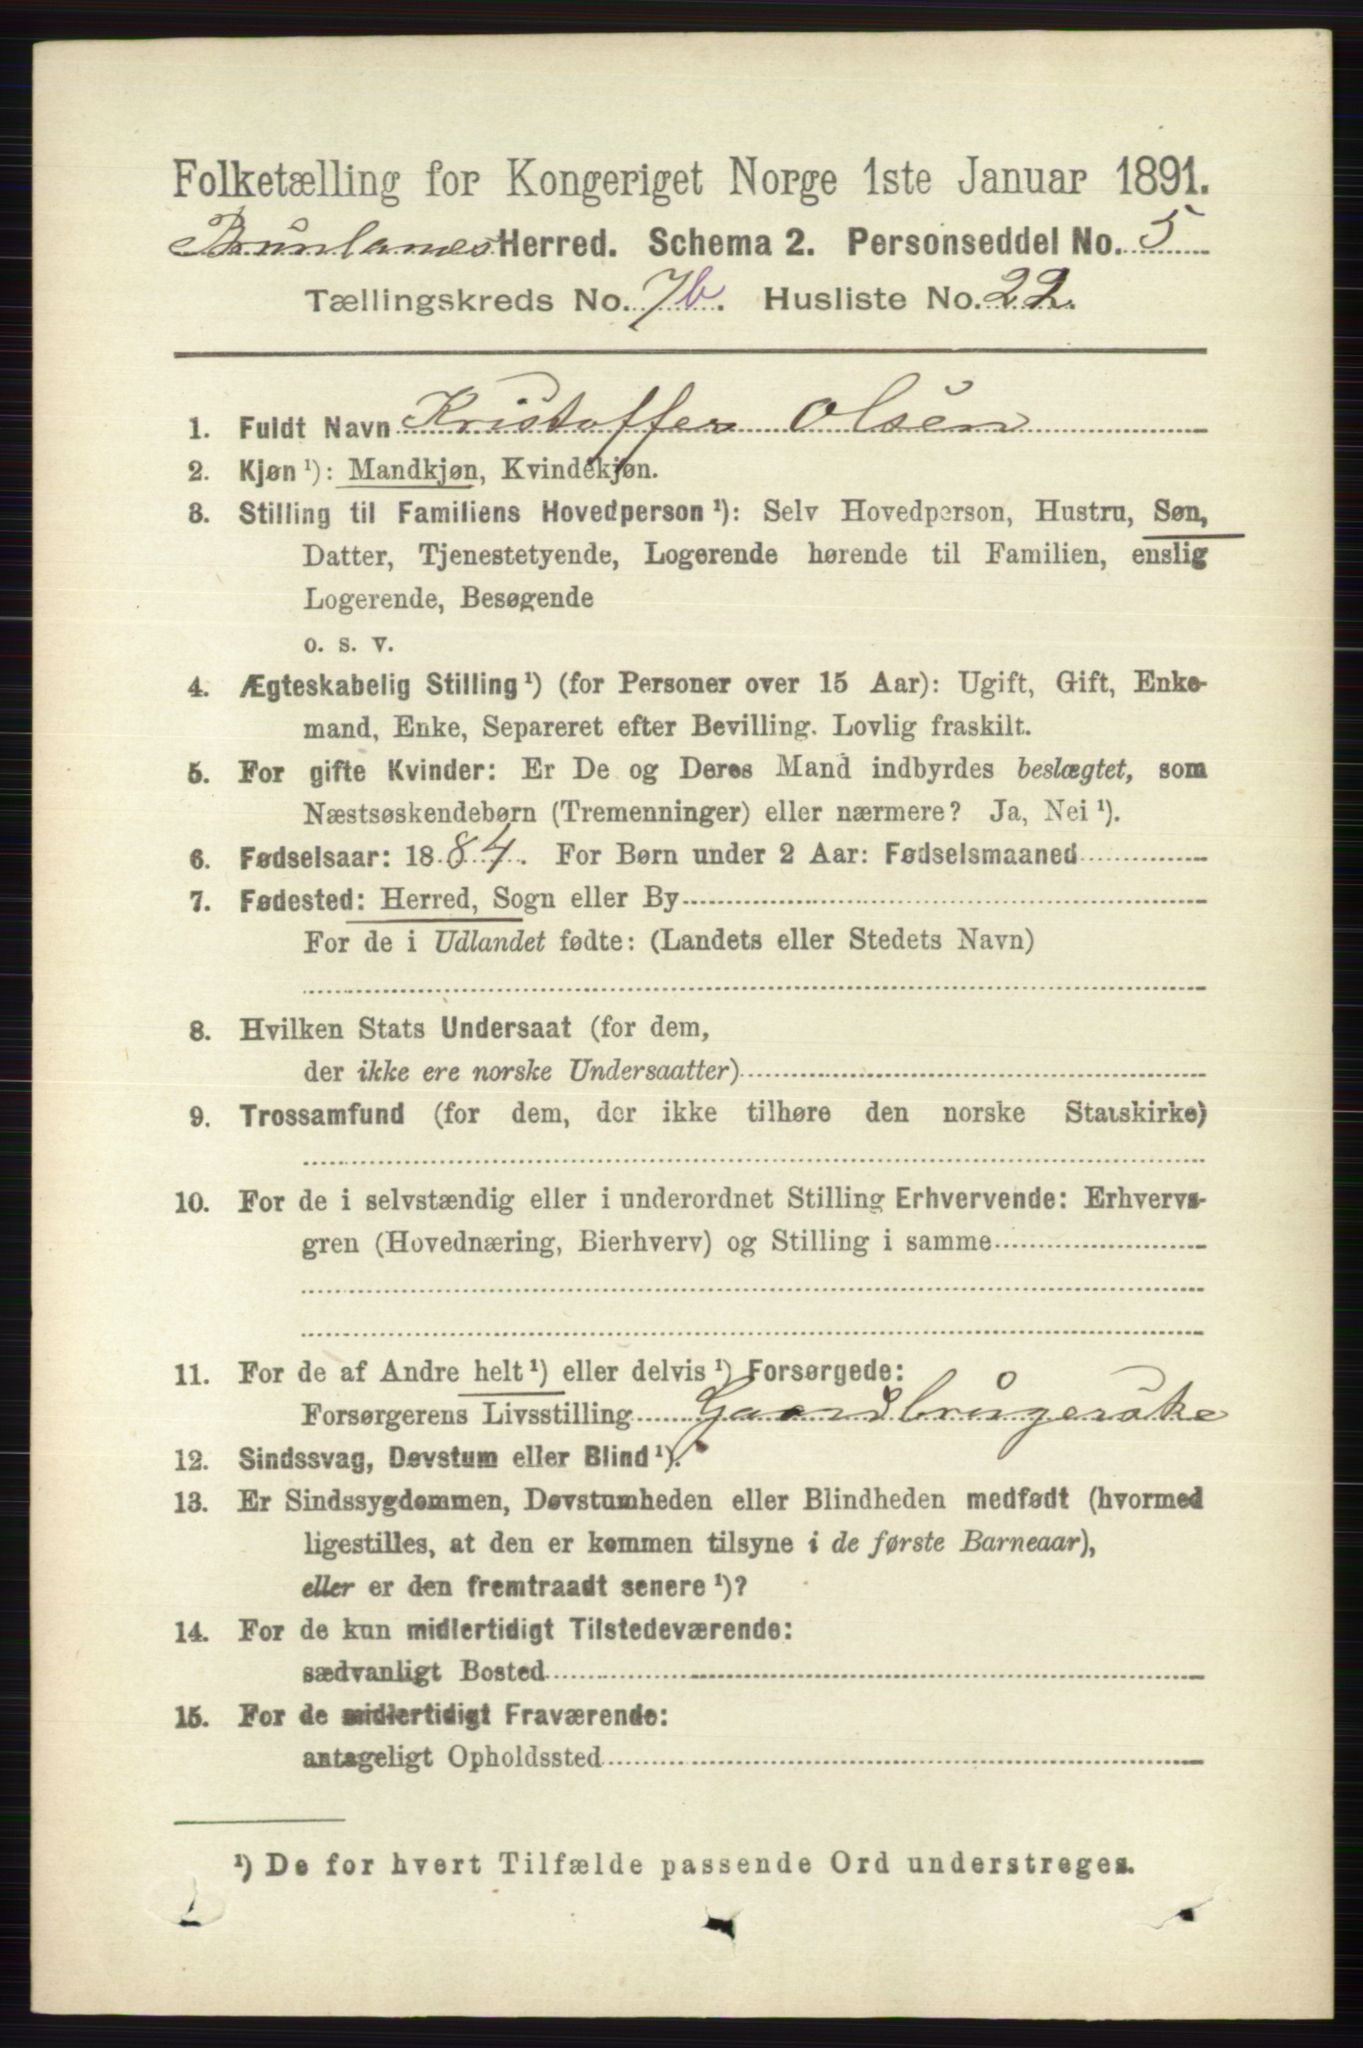 Folketælling for Kongeriget Norge 1ste Januar 1891.
Brunlanes Herred. Schema 2. Personseddel No. 5
Tællingskreds No. 7b. Husliste No. 22.
1. Fuldt Navn Kristoffer Olsen
2. Kjøn ¹): Mandkjøn, Kvindekjøn.
3. Stilling til Familiens Hovedperson ¹): Selv Hovedperson, Hustru, Søn,
Datter, Tjenestetyende, Logerende hørende til Familien, enslig
Logerende, Besøgende
o. s. v.
4. Ægteskabelig Stilling ¹) (for Personer over 15 Aar): Ugift, Gift, Enke-
mand, Enke, Separeret efter Bevilling. Lovlig fraskilt.
5. For gifte Kvinder: Er De og Deres Mand indbyrdes beslægtet, som
Næstsøskendebørn (Tremenninger) eller nærmere? Ja, Nei ¹).
6. Fødselsaar: 1884. For Børn under 2 Aar: Fødselsmaaned
7. Fødested: Herred, Sogn eller By
For de i Udlandet fødte: (Landets eller Stedets Navn)
8. Hvilken Stats Undersaat (for dem,
der ikke ere norske Undersaatter)
9. Trossamfund (for dem, der ikke tilhøre den norske Statskirke)
10. For de i selvstændig eller i underordnet Stilling Erhvervende: Erhvervs-
gren (Hovednæring, Bierhverv) og Stilling i samme
11. For de af Andre helt ¹) eller delvis ¹) Forsørgede:
Forsørgerens Livsstilling Gaardbrugerske
12. Sindssvag, Døvstum eller Blind ¹).
13. Er Sindssygdommen, Døvstumheden eller Blindheden medfødt (hvormed
ligestilles, at den er kommen tilsyne i de første Barneaar),
eller er den fremtraadt senere ¹)?
14. For de kun midlertidigt Tilstedeværende:
sædvanligt Bosted
15. For de midlertidigt Fraværende:
antageligt Opholdssted
¹) De for hvert Tilfælde passende Ord understreges.